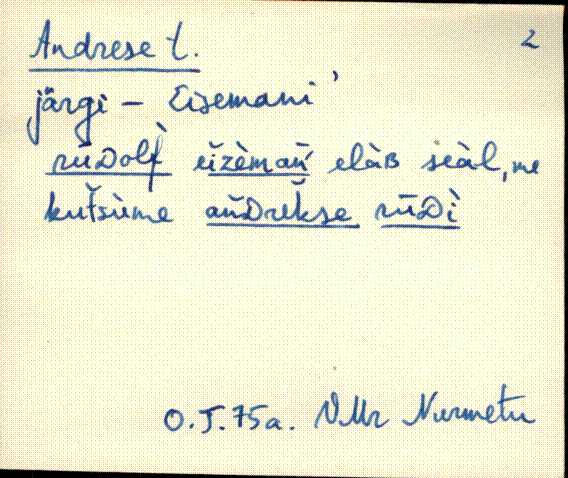 Andrese t. 2
järgi – Eisemani
rūDolf̀ eīzèmań elàʙ seàl, me
kut̆sùme ańDrek̆se rūDì
O.J. 75a. VMr Nurmetu